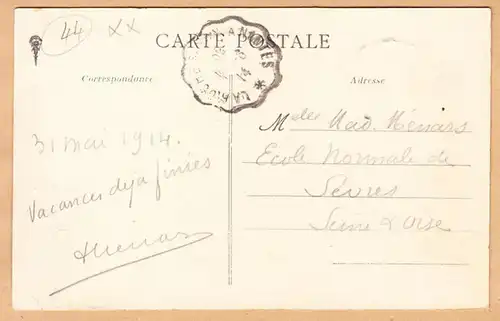 44 XX
CARTE POSTALE
Correspondance
Adresse
A NANTES
14
31 mai 1914.
Vacances deja finies
Melle Mad. Ménars
Ecole Normale de
Sèvres
Seine & Oise